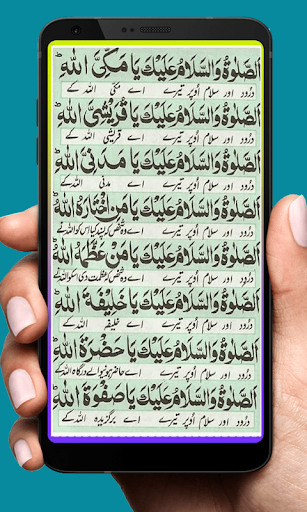 اَلصَّلٰوةُ وَالسَّلَامُ عَلَيْكَ يَا مَكِّيَّ اللهِ ؕ
درُود اور سلام اُوپر تیرے اے مکی اللہ کے
اَلصَّلٰوةُ وَالسَّلَامُ عَلَيْكَ يَا قُرَيْشِيَّ اللهِ ؕ
درُود اور سلام اُوپر تیرے اے قریشی اللہ کے
اَلصَّلٰوةُ وَالسَّلَامُ عَلَيْكَ يَا مَدَنِيَّ اللهِ ؕ
درُود اور سلام اُوپر تیرے اے مدنی اللہ کے
اَلصَّلٰوةُ وَالسَّلَامُ عَلَيْكَ يَا مَنِ اخْتَارَهُ اللهُ ؕ
درُود اور سلام اُوپر تیرے اے وہ شخص کہ پسند کیا اس کو اللہ نے
اَلصَّلٰوةُ وَالسَّلَامُ عَلَيْكَ يَا مَنْ عَظَّمَهُ اللهُ ؕ
درُود اور سلام اُوپر تیرے اے وہ شخص کہ عظمت دی اسکو اللہ نے
اَلصَّلٰوةُ وَالسَّلَامُ عَلَيْكَ يَا خَلِيْفَةَ اللهِ ؕ
درُود اور سلام اُوپر تیرے اے خلیفہ اللہ کے
اَلصَّلٰوةُ وَالسَّلَامُ عَلَيْكَ يَا حَضْرَةَ اللهِ ؕ
درُود اور سلام اُوپر تیرے اے حاضر ہونیوالے درگاہ اللہ کے
اَلصَّلٰوةُ وَالسَّلَامُ عَلَيْكَ يَا صَفْوَةَ اللهِ ؕ
درُود اور سلام اُوپر تیرے اے برگزیدہ اللہ کے